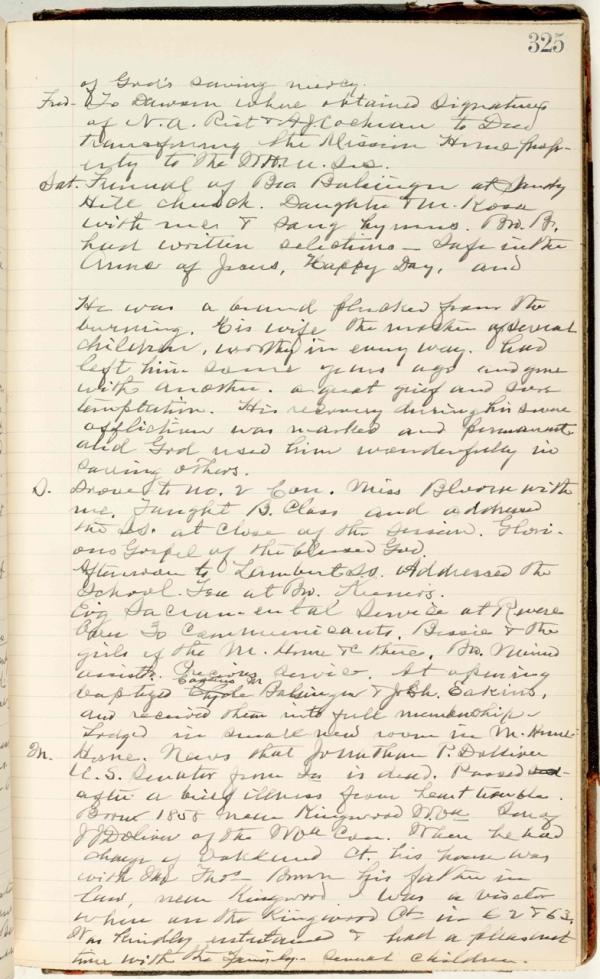 325
of God's saving mercy.
Frid. To Dawson where obtained signatures
of N. A. Rist & Cochran to Deed
transferring the Mission Home prop-
erty to the W.H.M. Soc.
Sat. Funeral of Bro Balsinger at Sandy
Hill church. Daughter & M. Rosa
with me & sang hymns. Bro. B.
had written selections – Safe in the
Arms of Jesus, Happy Day, and
He was a brand plucked from the
burning. His wife the mother of several
children, worthy in every way. had
left him some years ago and gone
with another. a great grief and sore
temptation. His recovery during his severe
affliction was marked and permanent
and God used him wonderfully in
saving others.
S. Drove to No. 2 Miss Bloom with
me. Taught B. Class and addressed
the SS. at close of the session. Glori-
ous Gospel of the blessed God.
Afternoon to Lambert SS. Addressed the
School. Tea at Bro.
Evg Sacramental Service at Revere
Over 70 Communicants. Bessie & the
girls of the M. Home & there. Bro.
assists. Precious service. At opening
baptized Balsinger & Eakins,
and received them into full membership.
Lodged in small new room in M. Home
M. Home. News that Jonathan P. Dolliver
U.S. Senator from Ia is dead. Passed
after a brief illness from heart trouble.
Born 1858 near Kingwood W.Va Son of
JJ Doliver of the W Va Con. When he had
charge of Oakland Ct. his house was
with Thos Brown his father in
law, near Kingwood. I was a visitor
when on the Kingwood Ct in 62 & 63.
Was kindly entertained & had a pleasant
time with the family. several children.